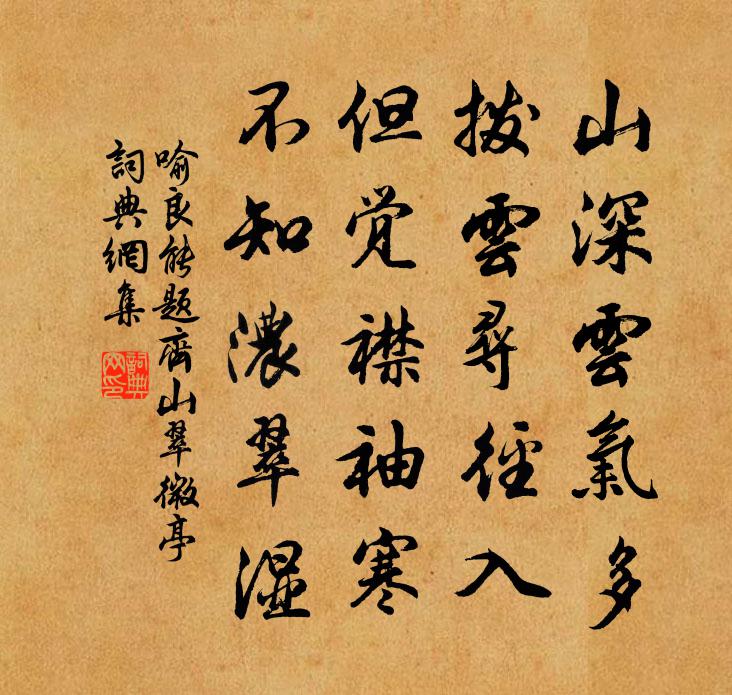 山深雲氣多
拨雲尋徑入
但觉襟袖寒
不知濃翠湿
喻良能题齊山翠微亭
詞典網集
詞典網印